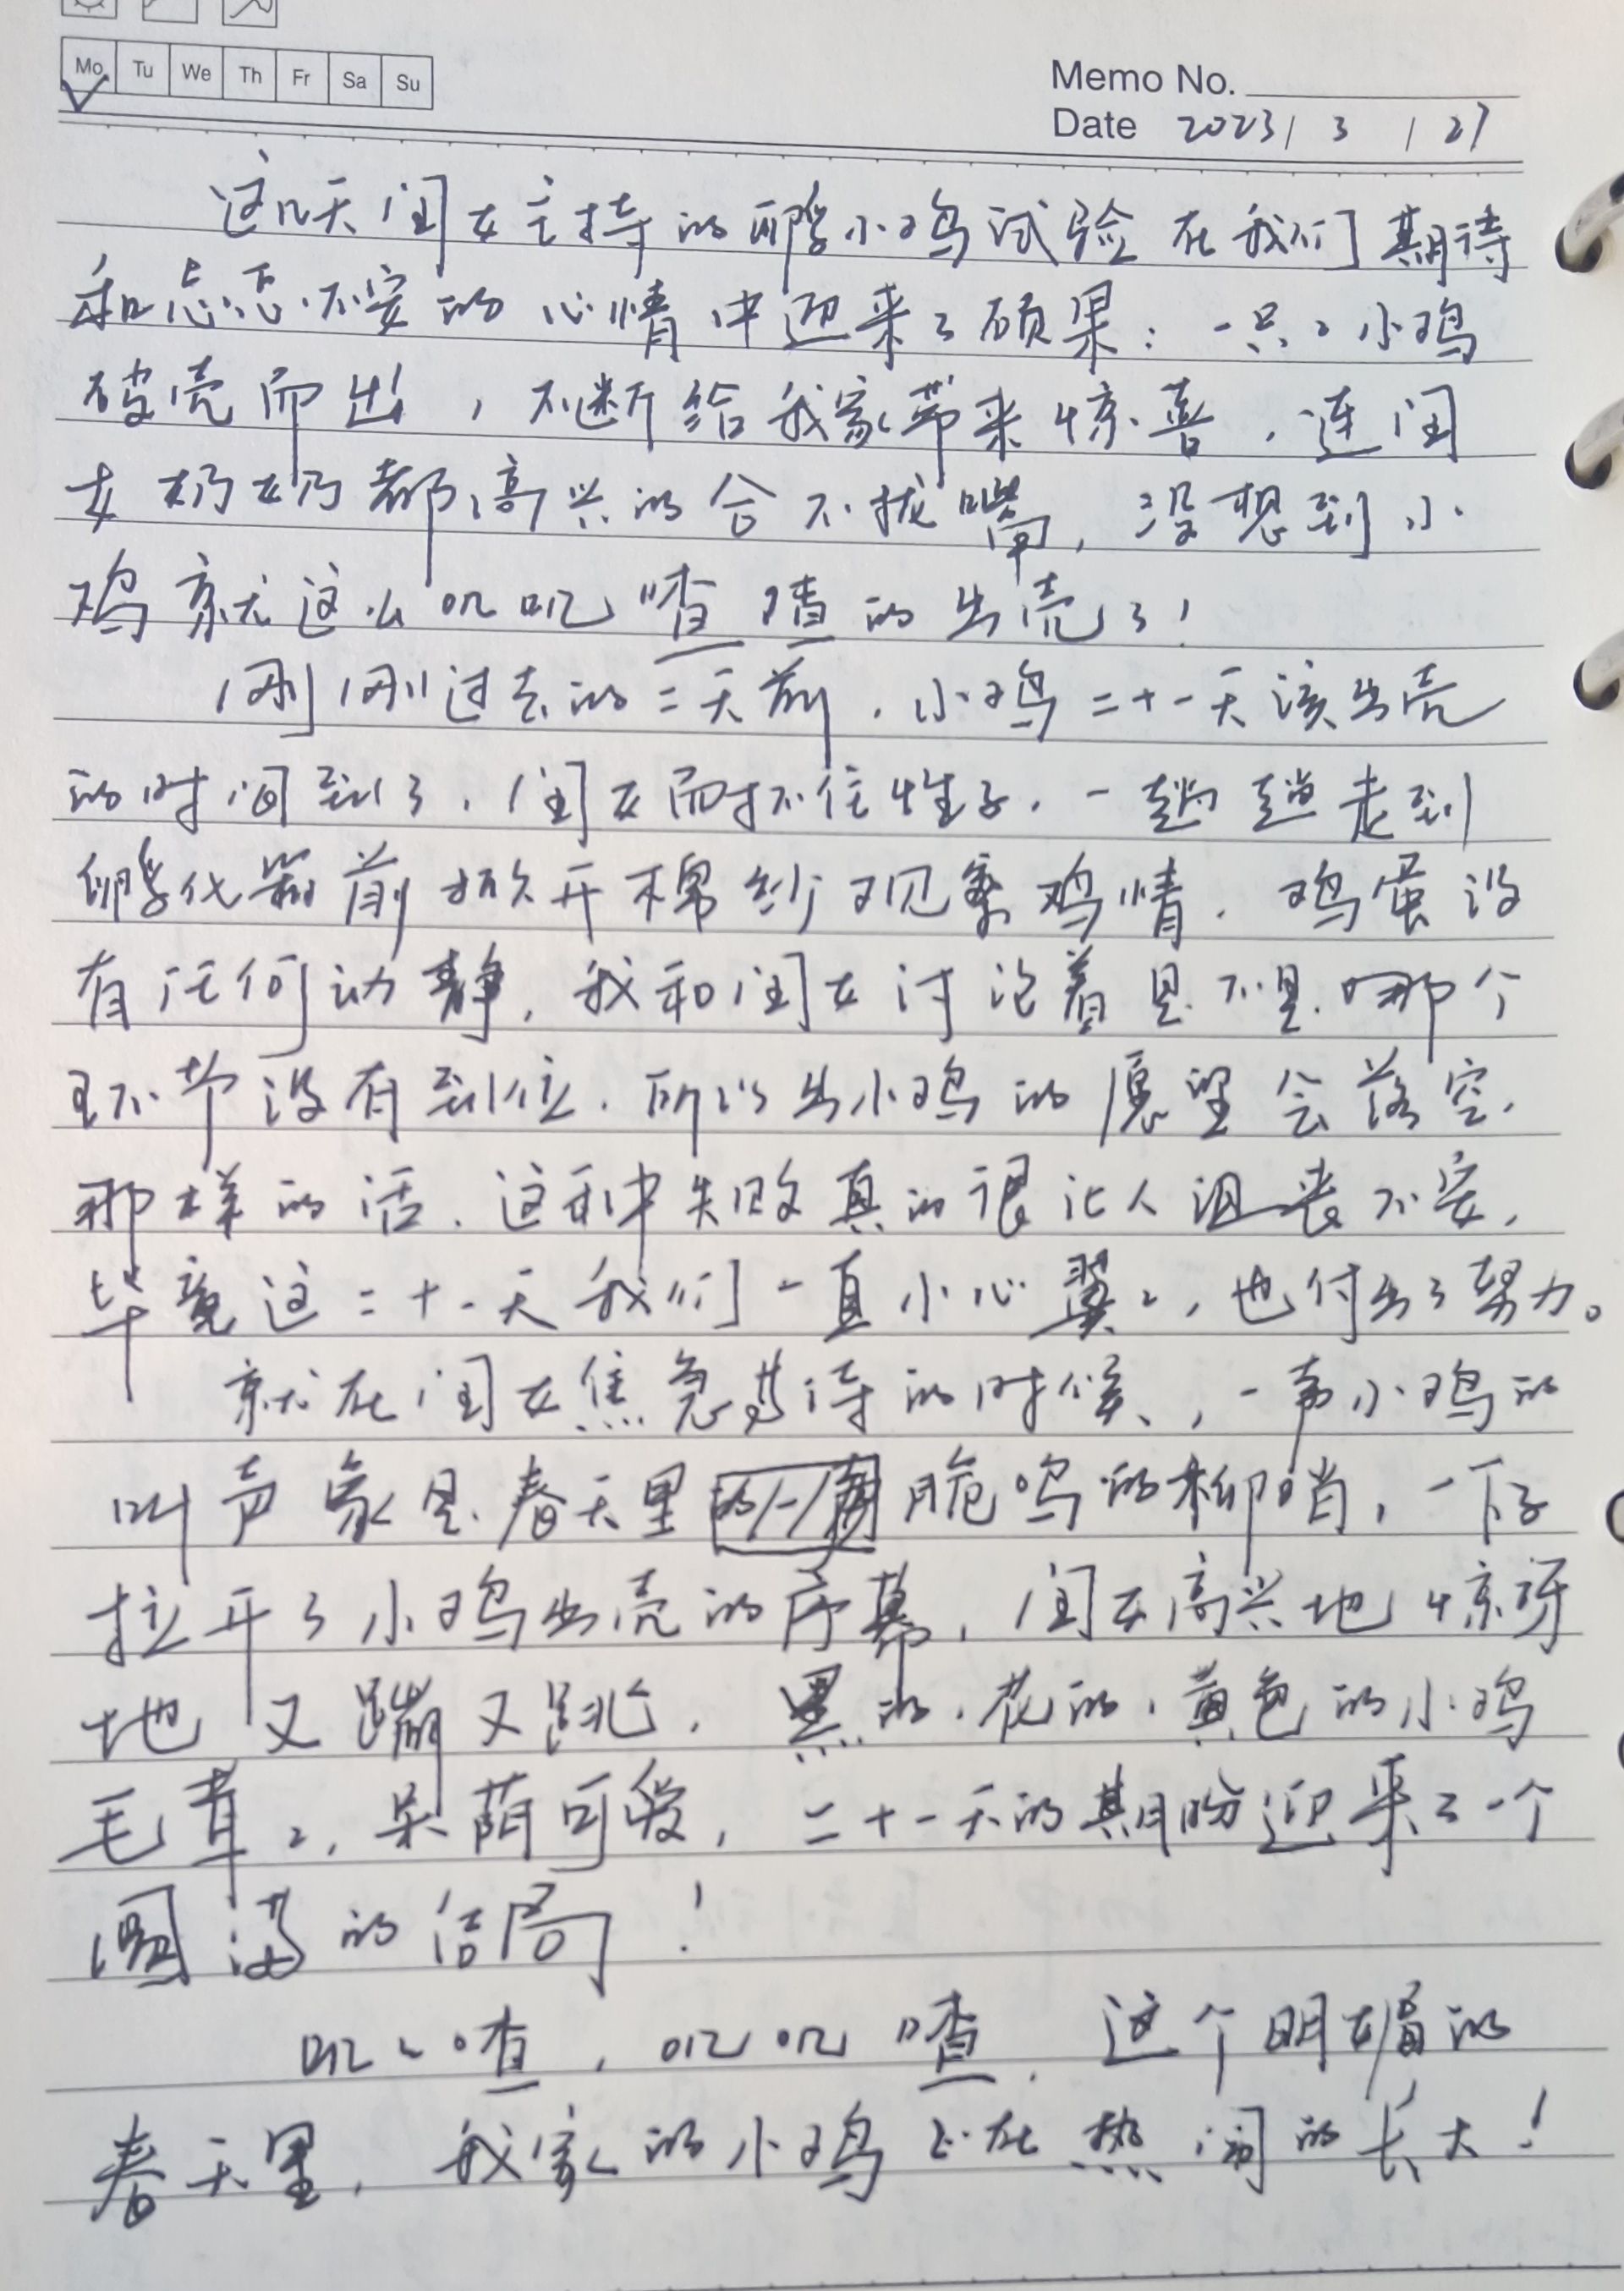 Mo Tu We Th Fr Sa Su
Memo No.
Date 2023/3/27
这几天闺女主持的孵小鸡试验在我们期待
和忐忑不安的心情中迎来了硕果：一只々小鸡
破壳而出，不断给我家带来惊喜，连闺
女奶奶都高兴的合不拢嘴，没想到小
鸡就这么叽叽喳喳的出壳了！
刚刚过去的二天前，小鸡二十一天该出壳
的时间到了，闺女耐不住性子，一趟趟走到
孵化箱前掀开棉纱观察鸡情，鸡蛋没
有任何动静，我和闺女讨论着是不是哪个
环节没有到位，所以出小鸡的愿望会落空，
那样的话，这种失败真的很让人沮丧不安，
毕竟这二十一天我们一直小心翼々，也付出了努力。
就在闺女焦急等待的时候，一声小鸡的
叫声象是春天里脆鸣的柳哨，一下子
拉开了小鸡出壳的序幕，闺女高兴地惊讶
地又蹦又跳，黑的，花的，黄色的小鸡
毛茸々，呆萌可爱，二十一天的期盼迎来了一个
圆满的结局！
叽々喳，叽叽喳，这个明媚的
春天里，我家的小鸡正在热闹的长大！